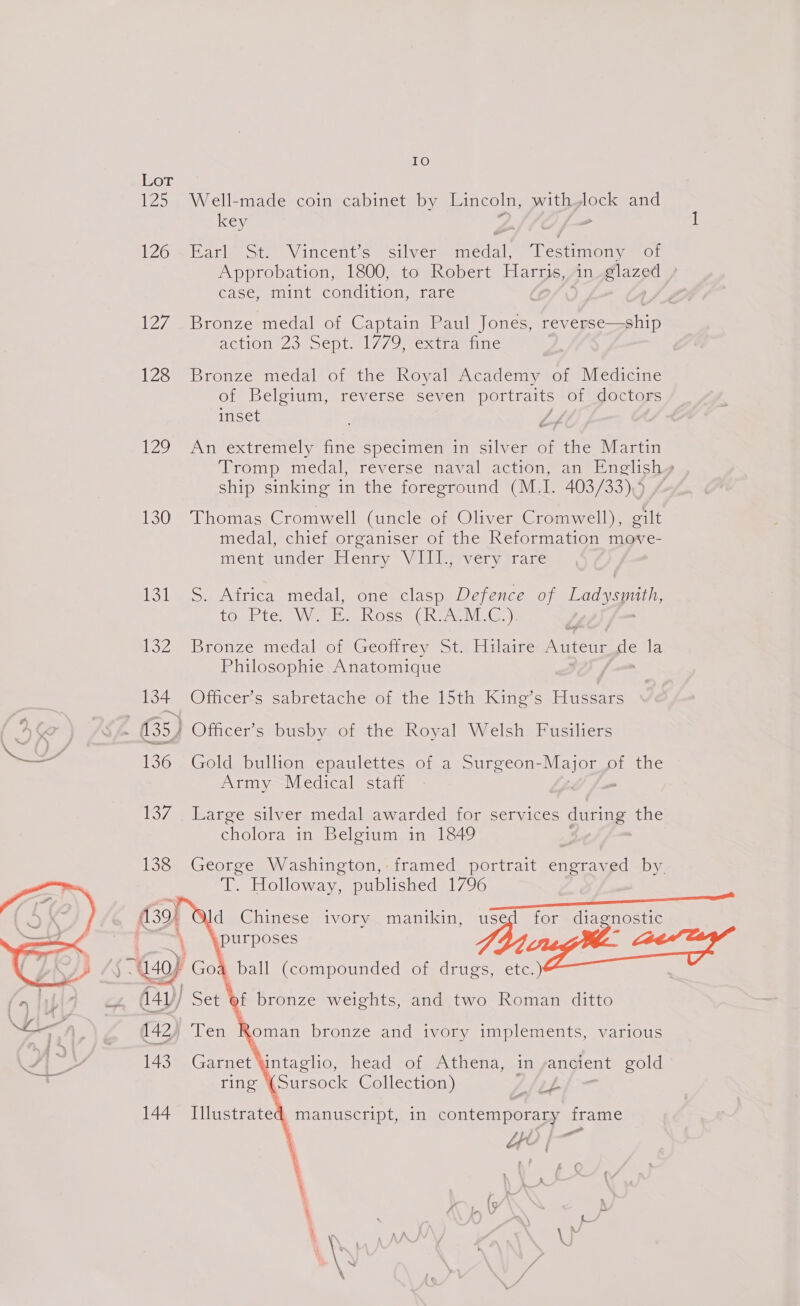 10
Lot
125 Well-made coin cabinet by Lincoln, with lock and
key
126 Earl St. Vincent's silver medal, Testimony of
Approbation, 1800, to Robert Harris, in glazed
case, mint condition, rare
127 Bronze medal of Captain Paul Jones, reverse—ship
action 23 Sept. 1779, extra fine
128 Bronze medal of the Royal Academy of Medicine
of Belgium, reverse seven portraits of doctors
inset
129 An extremely fine specimen in silver of the Martin
Tromp medal, reverse naval action, an English
ship sinking in the foreground (M.I. 403/33)
130 Thomas Cromwell (uncle of Oliver Cromwell), gilt
medal, chief organiser of the Reformation move-
ment under Henry VIII., very rare
131 S. Africa medal, one clasp Defence of Ladysmith,
to Pte. W. E. Ross (R.A.M.C.)
132 Bronze medal of Geoffrey St. Hilaire Auteur de la
Philosophie Anatomique
134 Officer's sabretache of the 15th King's Hussars
135 Officer's busby of the Royal Welsh Fusiliers
136 Gold bullion epaulettes of a Surgeon-Major of the
Army Medical staff
137 Large silver medal awarded for services during the
cholora in Belgium in 1849
138 George Washington, framed portrait engraved by
T. Holloway, published 1796
139 Old Chinese ivory manikin, used for diagnostic
purposes
140 Goa ball (compounded of drugs, etc.)
141 Set of bronze weights, and two Roman ditto
142 Ten Roman bronze and ivory implements, various
143 Garnet intaglio, head of Athena, in ancient gold
ring (Sursock Collection)
144 Illustrated manuscript, in contemporary frame